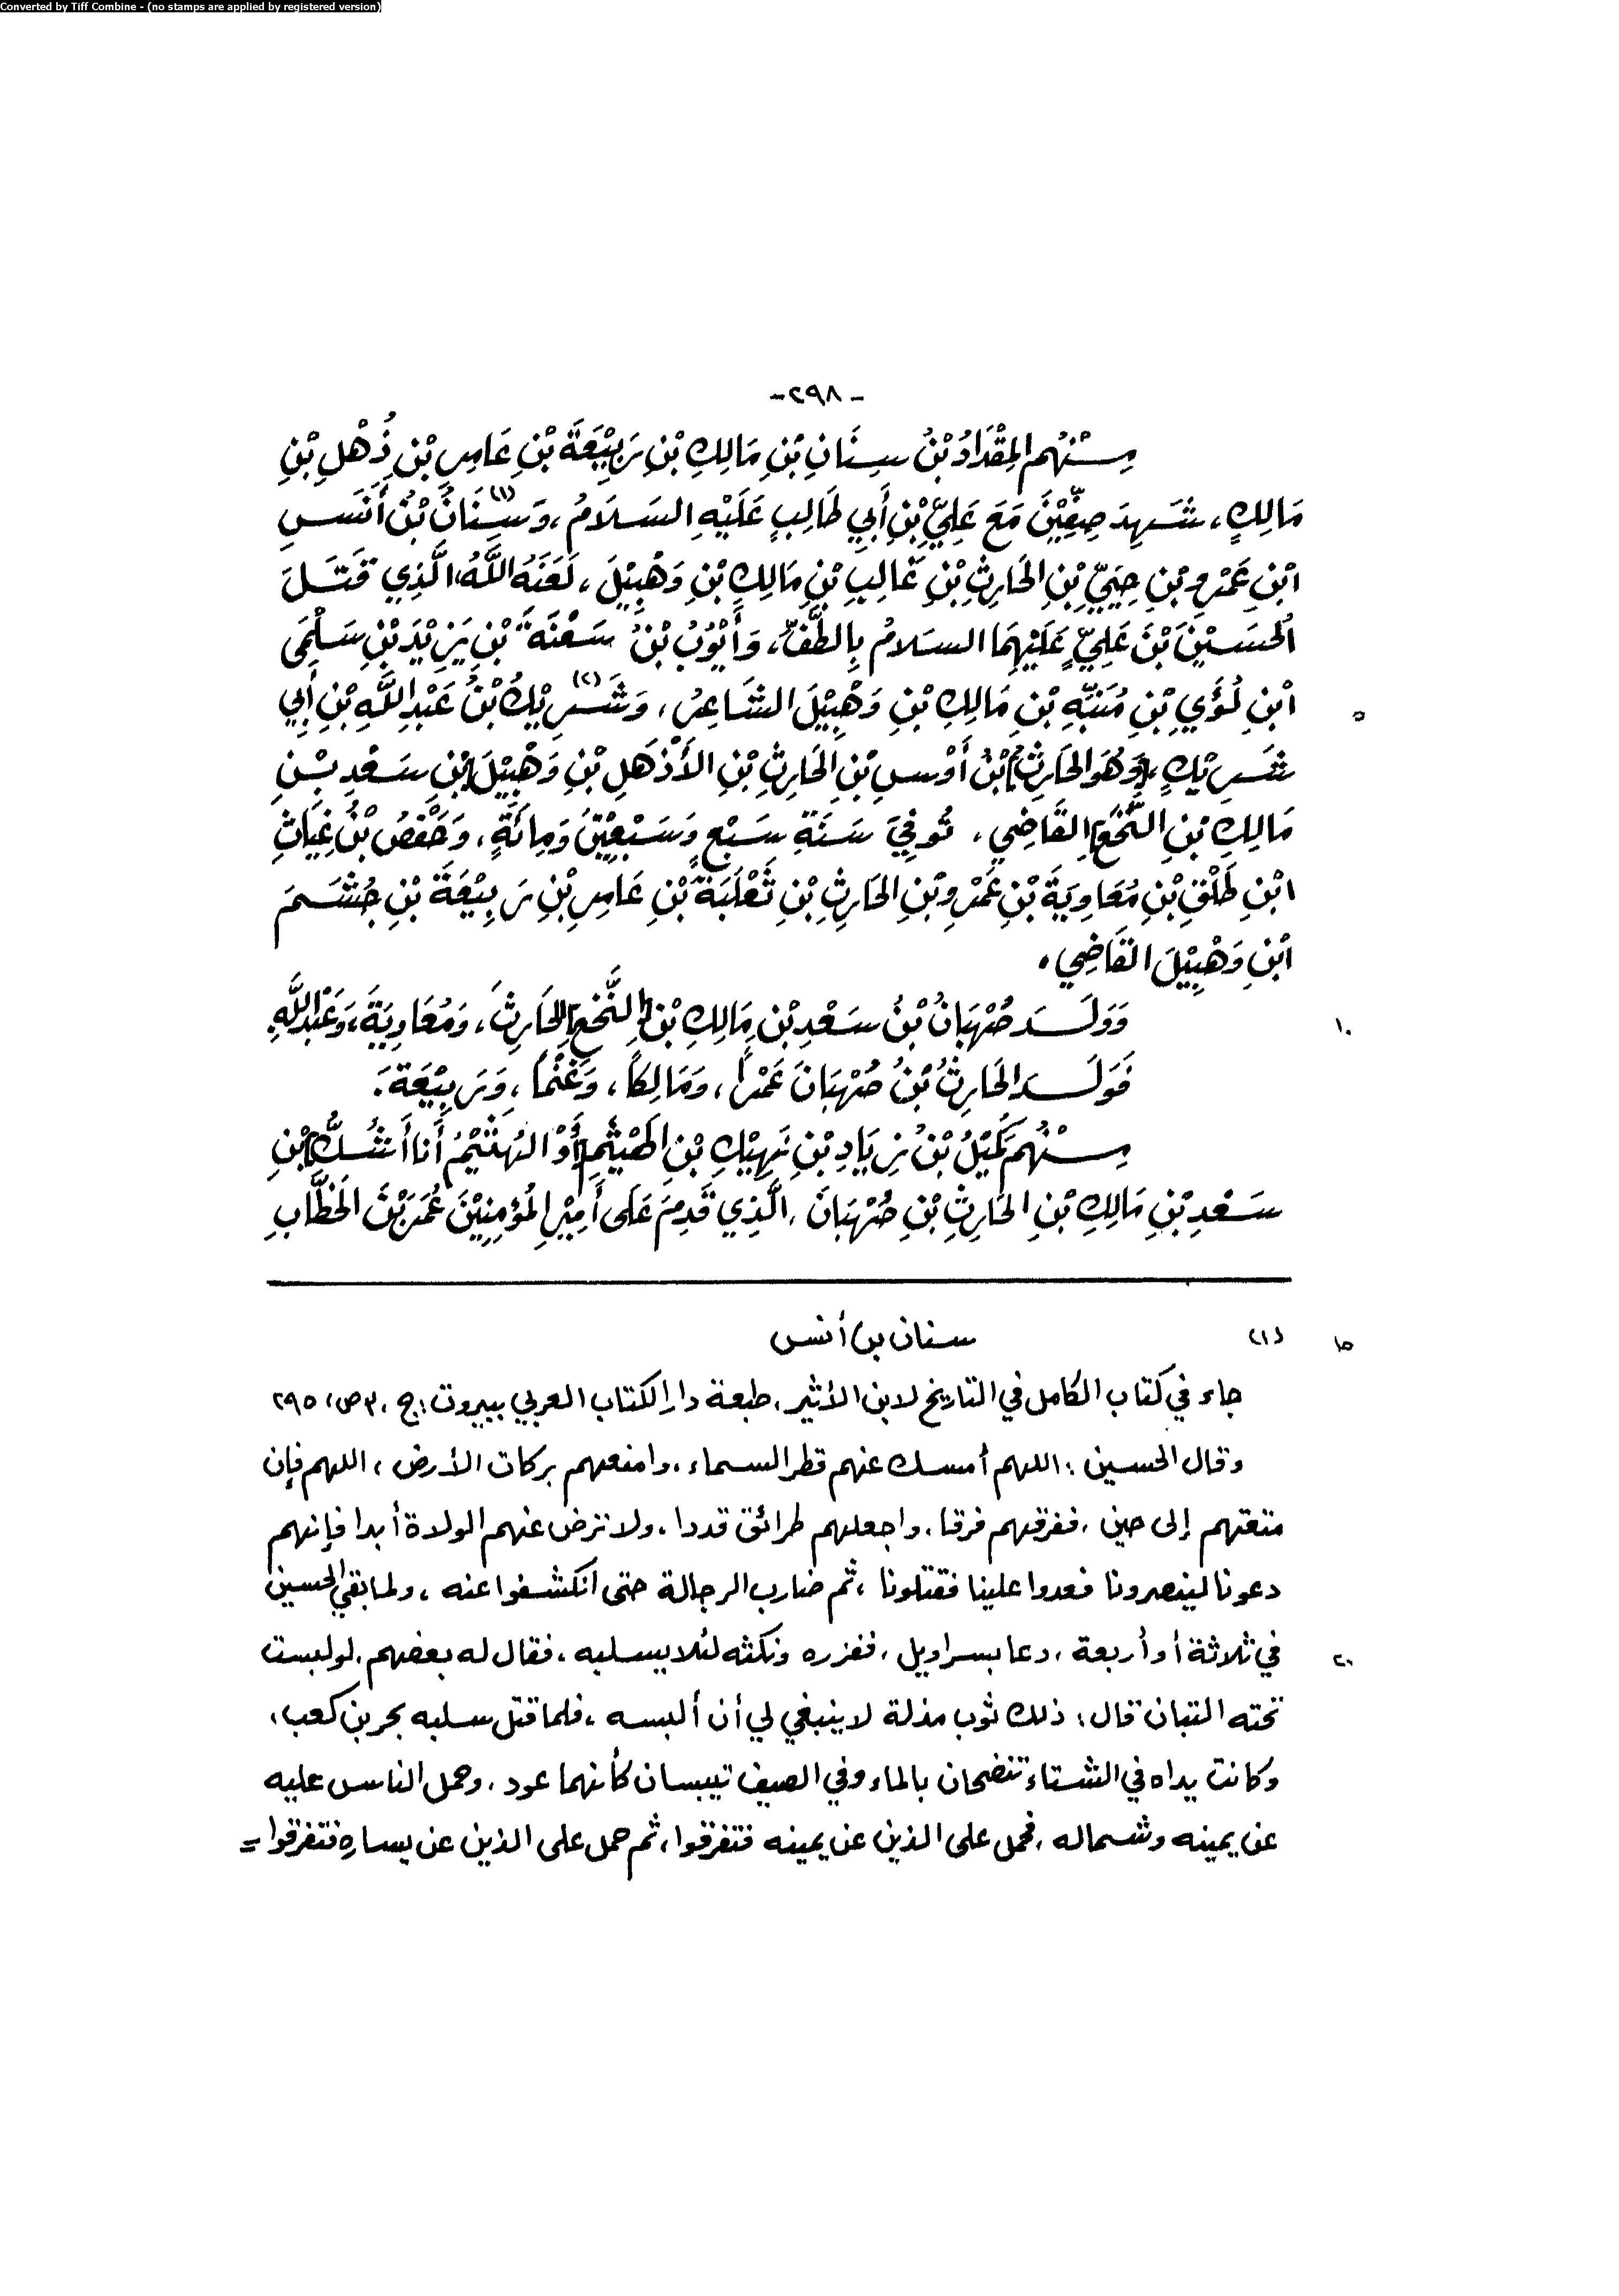 Converted by Tiff Combine - (no stamps are applied by registered version)
- ٢٩٨ -
مِنْهُم المِقْدَادُ بْنُ سِنَانِ بْنِ مَالِكِ بْنِ رَبِيْعَةَ بْنِ عَامِرِ بْنِ ذُهْلِ بْنِ
مَالِكٍ، شَهِدَ صِفِّيْنَ مَعَ عَلِيِّ بْنِ أَبِي طَالِبٍ عَلَيْهِ السَلَامُ، وَسِنَانُ(١) بْنُ أَنَسِ
ابْنِ عَمْرِو بْنِ حِيَيِّ بْنِ الحَارِثِ بْنِ غَالِبِ بْنِ مَالِكِ بْنِ وَهْبِيْلَ، لَعَنَهُ اللَّهُ، الَّذِي قَتَلَ
الحُسَيْنَ بْنَ عَلِيٍّ عَلَيْهِمَا السَلَامُ بِالطَّفِّ، وَأَيُّوْبُ بْنُ سَعْنَةَ بْنِ يَزِيْدَ بْنِ سَلْمَى
ابْنِ لُؤَيِ بْنِ مُنَبِّهِ بْنِ مَالِكِ بْنِ وَهْبِيْلَ الشَاعِرُ، وَشَرِيْكُ(٢) بْنُ عَبْدِ اللَّهِ بْنِ أَبِي
٥
شَرِيْكٍ [وَهُوَ الحَارِثُ] بْنُ أَوْسِ بْنِ الحَارِثِ بْنِ الأَذْهَلِ بْنِ وَهْبِيْلَ [بْنِ سَعْدِ بْنِ
مَالِكِ بْنِ النَّخَعِ] القَاضِي، تُوفِيَ سَنَةِ سَبْعٍ وَسَبْعِيْنَ وَمِائَةٍ، وَحَفْصُ بْنُ غِيَاثِ
ابْنِ طَلْقِ بْنِ مُعَاوِيَةَ بْنِ عَمْرِو بْنِ الحَارِثِ بْنِ ثَعْلَبَةَ بْنِ عَامِرِ بْنِ رَبِيْعَةَ بْنِ جُشَمَ
ابْنِ وَهْبِيْلَ القَاضِي.
وَوَلَدَ صُهْبَانُ بْنُ سَعْدِ بْنِ مَالِكِ بْنِ [النَّخَعِ] الحَارِثَ، وَمُعَاوِيَةَ، وَعَبْدَ اللَّهِ.
١٠
فَوَلَدَ الحَارِثُ بْنُ صُهْبَانَ عَمْرًا، وَمَالِكاً، وَغَنْماً، وَرَبِيْعَةَ.
مِنْهُم كُمَيْلُ بْنُ زِيَادِ بْنِ نَهِيْكِ بْنِ الهَيْثَمِ [أَوْ النُهَثَيْمُ أَنا أَشُكُّ] بْنِ
سَعْدِ بْنِ مَالِكِ بْنِ الحَارِثِ بْنِ صُهْبَانَ، الَّذِي قَدِمَ عَلَى أَمِيْرِ المُؤمِنِيْنَ عُمَرَ بْنَ الخَطَّابِ
(١) سنان بن أنس
١٥
جاء في كتاب الكامل في التاريخ لابن الأثير، طبعة دار الكتاب العربي ببيروت: ج، ٣ ص، ٢٩٥
وقال الحسين: اللهم أمسك عنهم قطر السماء، وامنعهم بركات الأرض، اللهم فإن
متعتهم إلى حين، ففرقهم فرقا، واجعلهم طرائق قددا، ولا ترض عنهم الولاة أبدا فإنهم
دعونا لينصرونا فعدوا علينا فقتلونا، ثم ضارب الرجالة حتى انكشفوا عنه، ولما بقي الحسين
في ثلاثة أو أربعة، دعا بسراويل، ففزره ونكثه لئلا يسلبه، فقال له بعضهم، لو لبست
٢٠
تحته التبان قال: ذلك ثوب مذلة لا ينبغي لي أن ألبسه، فلما قتل سلبه بحر بن كعب،
وكانت يداه في الشتاء تنضحان بالماء وفي الصيف تيبسان كأنهما عود، وحمل الناس عليه
عن يمينه وشماله، فحمل على الذين عن يمينه فتفرقوا، ثم حمل على الذين عن يساره فتفرقوا =